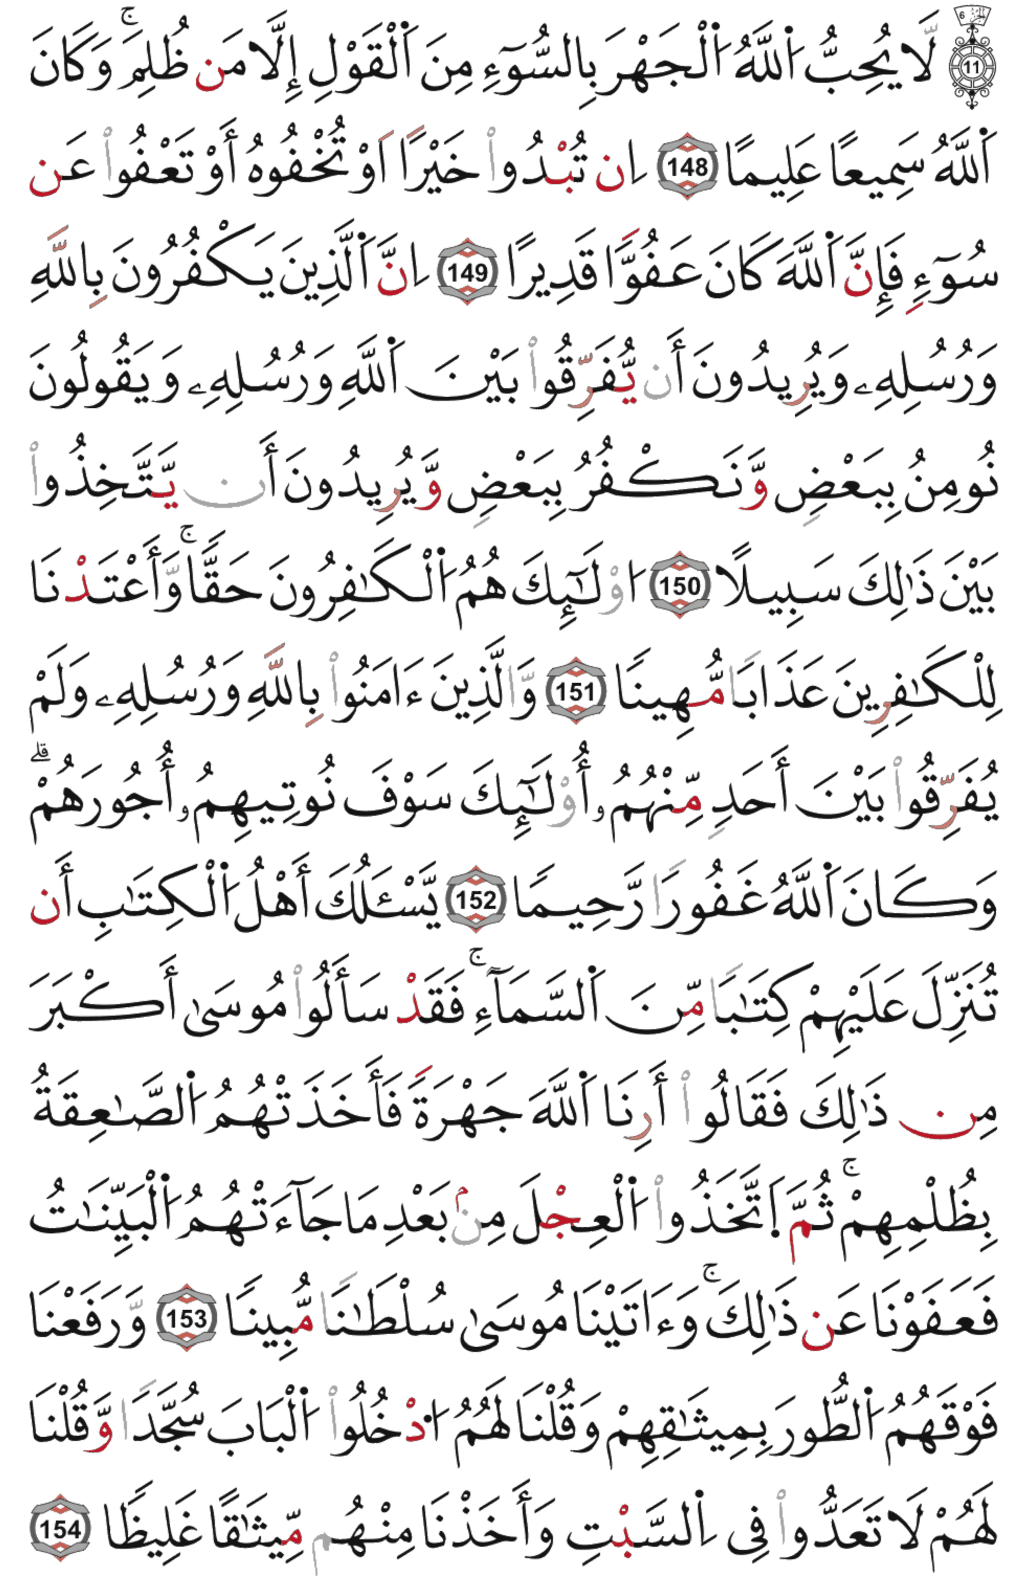 الجزء 6
11 لَّا يُحِبُّ اَ۬للَّهُ اُ۬لْجَهْرَ بِالسُّوٓءِ مِنَ اَ۬لْقَوْلِ إِلَّا مَن ظُلِمَۚ وَكَانَ
اَ۬للَّهُ سَمِيعًا عَلِيمًا 148 اِن تُبْدُواْ خَيْرًا اَوْ تُخْفُوهُ أَوْ تَعْفُواْ عَن
سُوٓءٍ فَإِنَّ اَ۬للَّهَ كَانَ عَفُوًّا قَدِيرًا 149 اِنَّ اَ۬لَّذِينَ يَكْفُرُونَ بِاللَّهِ
وَرُسُلِهِۦ وَيُرِيدُونَ أَن يُّفَرِّقُواْ بَيْنَ اَ۬للَّهِ وَرُسُلِهِۦ وَيَقُولُونَ
نُومِنُ بِبَعْضٍ وَّنَكْفُرُ بِبَعْضٍ وَّيُرِيدُونَ أَن يَّتَّخِذُواْ
بَيْنَ ذَٰلِكَ سَبِيلًا 150 اوْلَٰٓئِكَ هُمُ اُ۬لْكَٰفِرُونَ حَقًّاۚ وَّأَعْتَدْنَا
لِلْكَٰفِرِينَ عَذَابًا مُّهِينًا 151 وَّالَّذِينَ ءَامَنُواْ بِاللَّهِ وَرُسُلِهِۦ وَلَمْ
يُفَرِّقُواْ بَيْنَ أَحَدٍ مِّنْهُمُۥٓ أُوْلَٰٓئِكَ سَوْفَ نُوتِيهِمُۥٓ أُجُورَهُمْۗ
وَكَانَ اَ۬للَّهُ غَفُورًا رَّحِيمًا 152 يَّسْـَٔلُكَ أَهْلُ اُ۬لْكِتَٰبِ أَن
تُنَزِّلَ عَلَيْهِمْ كِتَٰبًا مِّنَ اَ۬لسَّمَآءِۚ فَقَدْ سَأَلُواْ مُوسَىٰ أَكْبَرَ
مِن ذَٰلِكَ فَقَالُواْ أَرِنَا اَ۬للَّهَ جَهْرَةً فَأَخَذَتْهُمُ اُ۬لصَّٰعِقَةُ
بِظُلْمِهِمْۚ ثُمَّ اَ۪تَّخَذُواْ اُ۬لْعِجْلَ مِنۢ بَعْدِ مَا جَآءَتْهُمُ اُ۬لْبَيِّنَٰتُ
فَعَفَوْنَا عَن ذَٰلِكَۚ وَءَاتَيْنَا مُوسَىٰ سُلْطَٰنًا مُّبِينًا 153 وَّرَفَعْنَا
فَوْقَهُمُ اُ۬لطُّورَ بِمِيثَٰقِهِمْ وَقُلْنَا لَهُمُ اُ۟دْخُلُواْ اُ۬لْبَابَ سُجَّدًا وَّقُلْنَا
لَهُمْ لَا تَعَدُّواْ فِى اِ۬لسَّبْتِ وَأَخَذْنَا مِنْهُم مِّيثَٰقًا غَلِيظًا 154